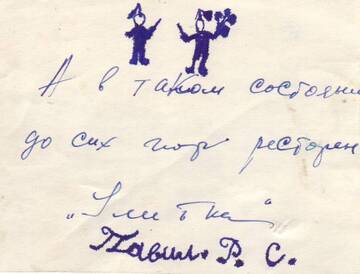 А в таком состояни
до сих пор ресторан
„Улитка"
Павил. Р. С.